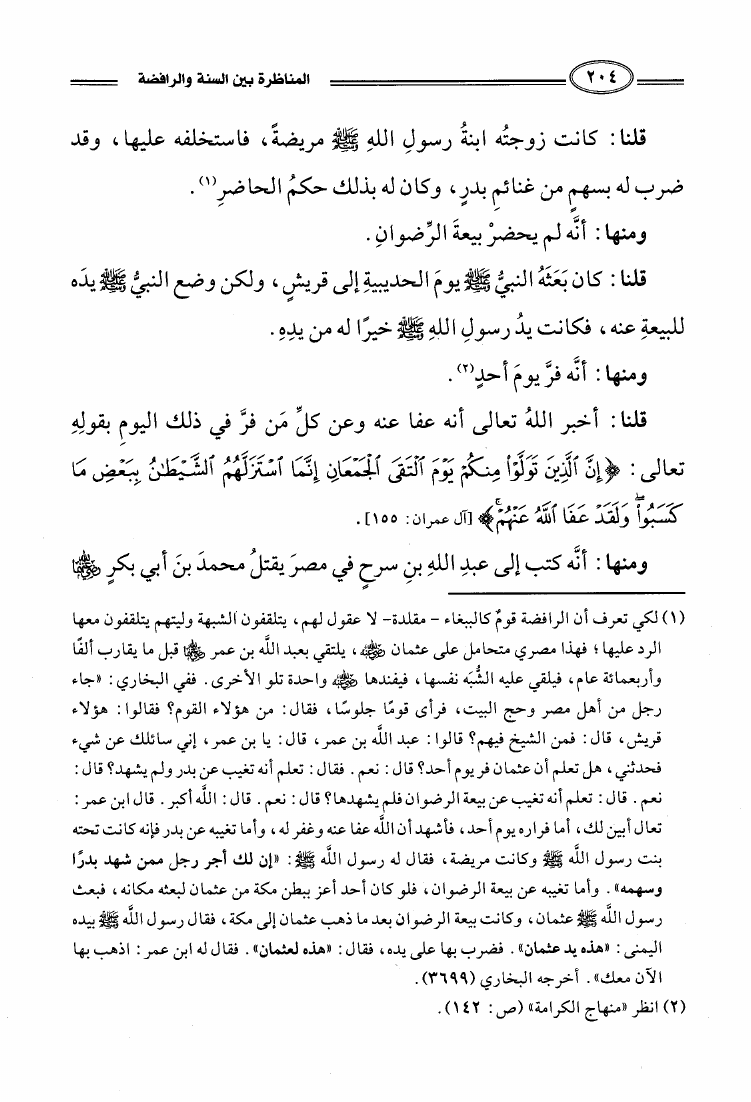 ٢٠٤
المناظرة بين السنة والرافضة
قلنا: كانت زوجتُه ابنةُ رسولِ اللهِ ﷺ مريضةً، فاستخلفه عليها، وقد
ضرب له بسهمٍ من غنائمِ بدرٍ، وكان له بذلك حكمُ الحاضرِ(١).
ومنها: أنَّه لم يحضرْ بيعةَ الرِّضوانِ.
قلنا: كان بَعَثَهُ النبيُّ ﷺ يومَ الحديبيةِ إلى قريشٍ، ولكن وضع النبيُّ ﷺ يدَه
للبيعةِ عنه، فكانت يدُ رسولِ اللهِ ﷺ خيرًا له من يدِهِ.
ومنها: أنَّه فرَّ يومَ أحدٍ(٢).
قلنا: أخبر اللهُ تعالى أنه عفا عنه وعن كلِّ مَن فرَّ في ذلك اليومِ بقولِهِ
تعالى: ﴿إِنَّ ٱلَّذِينَ تَوَلَّوْا۟ مِنكُمْ يَوْمَ ٱلْتَقَى ٱلْجَمْعَانِ إِنَّمَا ٱسْتَزَلَّهُمُ ٱلشَّيْطَـٰنُ بِبَعْضِ مَا
كَسَبُوا۟ ۖ وَلَقَدْ عَفَا ٱللَّهُ عَنْهُمْ ۚ﴾ [آل عمران: ١٥٥].
ومنها: أنَّه كتب إلى عبدِ اللهِ بنِ سرحٍ في مصرَ يقتلُ محمدَ بنَ أبي بكرٍ رضي الله عنهما
(١) لكي تعرف أن الرافضة قومٌ كالببغاء - مقلدة- لا عقول لهم، يتلقفون الشبهة وليتهم يتلقفون معها
الرد عليها؛ فهذا مصري متحامل على عثمان رضي الله عنه، يلتقي بعبد الله بن عمر رضي الله عنهما قبل ما يقارب ألفًا
وأربعمائة عام، فيلقي عليه الشُّبَه نفسها، فيفندها رضي الله عنه واحدة تلو الأخرى. ففي البخاري: «جاء
رجل من أهل مصر وحج البيت، فرأى قومًا جلوسًا، فقال: من هؤلاء القوم؟ فقالوا: هؤلاء
قريش، قال: فمن الشيخ فيهم؟ قالوا: عبد الله بن عمر، قال: يا بن عمر، إني سائلك عن شيء
فحدثني، هل تعلم أن عثمان فر يوم أحد؟ قال: نعم. فقال: تعلم أنه تغيب عن بدر ولم يشهد؟ قال:
نعم. قال: تعلم أنه تغيب عن بيعة الرضوان فلم يشهدها؟ قال: نعم. قال: الله أكبر. قال ابن عمر:
تعال أبين لك، أما فراره يوم أحد، فأشهد أن الله عفا عنه وغفر له، وأما تغيبه عن بدر فإنه كانت تحته
بنت رسول الله ﷺ وكانت مريضة، فقال له رسول الله ﷺ: «إن لك أجر رجل ممن شهد بدرًا
وسهمه». وأما تغيبه عن بيعة الرضوان، فلو كان أحد أعز ببطن مكة من عثمان لبعثه مكانه، فبعث
رسول الله ﷺ عثمان، وكانت بيعة الرضوان بعد ما ذهب عثمان إلى مكة، فقال رسول الله ﷺ بيده
اليمنى: «هذه يد عثمان». فضرب بها على يده، فقال: «هذه لعثمان». فقال له ابن عمر: اذهب بها
الآن معك». أخرجه البخاري (٣٦٩٩).
(٢) انظر «منهاج الكرامة» (ص: ١٤٢).